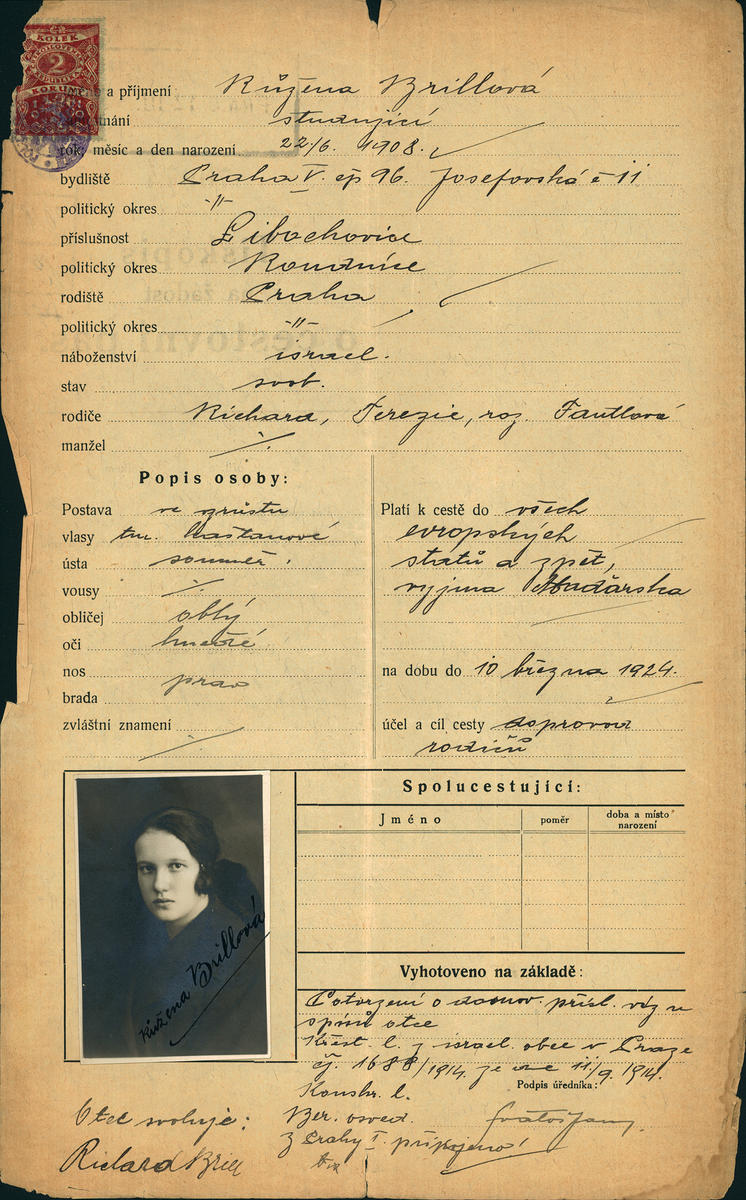 KOLEK
2
KORUN
a příjmení Růžena Brillová
studující
rok, měsíc a den narození 22/6. 1908.
bydliště Praha V. čp 96. Josefovská č 11
politický okres -"-
příslušnost Libochovice
politický okres Roudnice
rodiště Praha
politický okres -"-
náboženství israel.
stav svob.
rodiče Richard, Terezie, roz. Fantlová
manžel ·/.
Popis osoby:
Postava ve vzrůstu
vlasy tm. kaštanové
ústa souměr.
vousy ·/.
obličej oblý
oči hnědé
nos
brada
zvláštní znamení ·/.
Platí k cestě do všech
evropských
států a zpět,
vyjma Maďarska
na dobu do 10 března 1924.
účel a cíl cesty doprovod
rodičů
Spolucestující:
Jméno poměr doba a místo narození
Růžena Brillová
Vyhotoveno na základě:
Potvrzení o domov. přísl. viz u
spisů otce
Křest. l. z israel. obce v Praze
čj. 1688/1914 ze dne 11/9. 1914.
Podpis úředníka:
Ber. osved.
z Prahy I. připojeno!
Otec svoluje:
Richard Brill